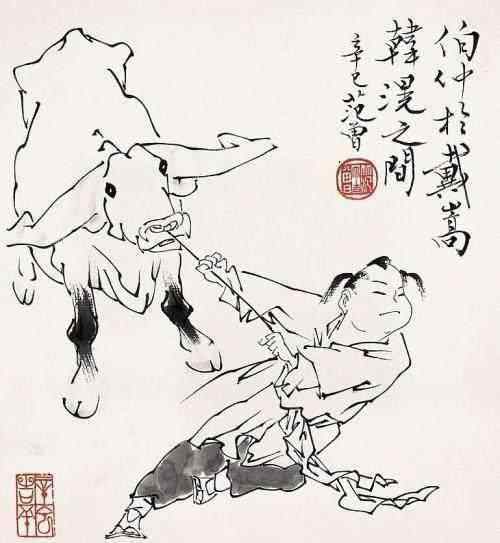 伯仲於戴嵩
韓滉之間
辛巳范曾